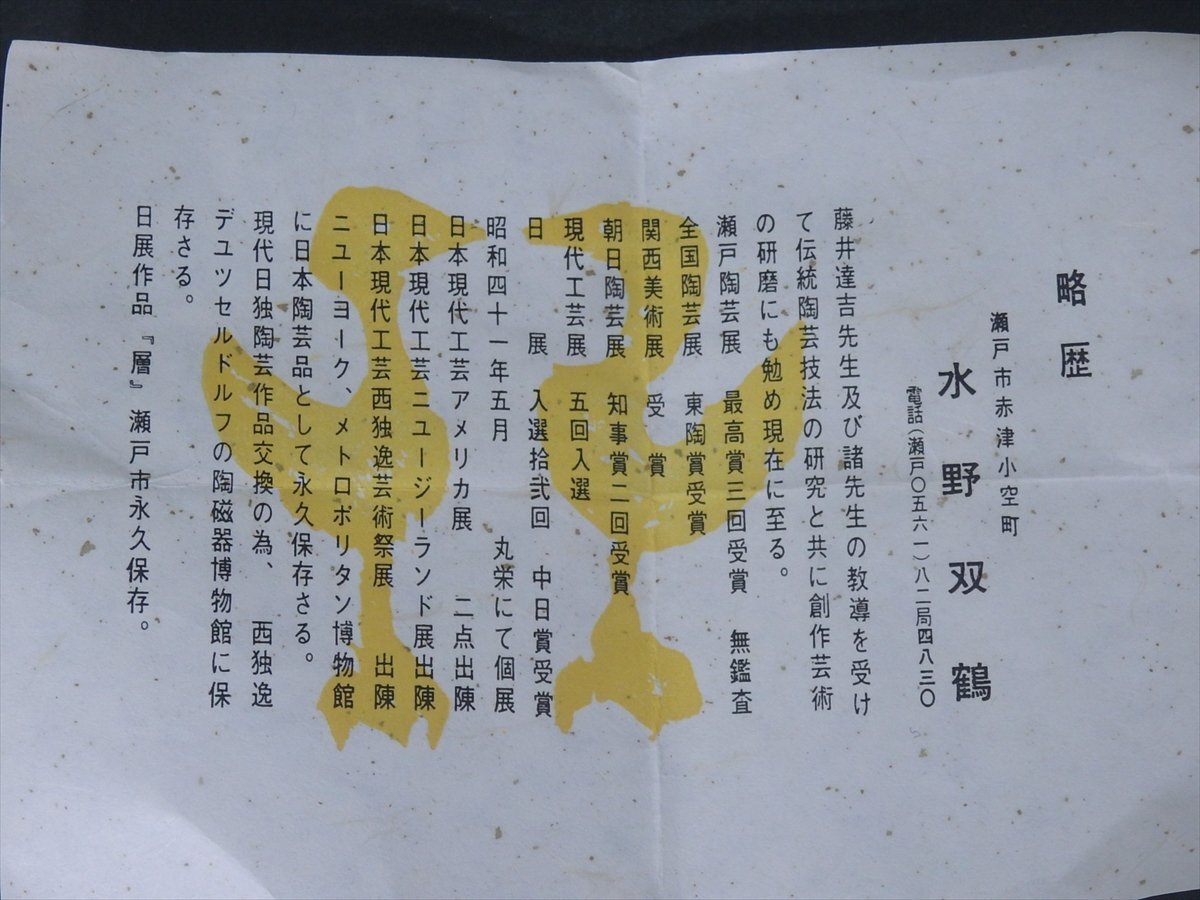 略歴
瀬戸市赤津小空町
水野双鶴
電話(瀬戸〇五六一)八二局四八三〇
藤井達吉先生及び諸先生の教導を受け
て伝統陶芸技法の研究と共に創作芸術
の研磨にも勉め現在に至る。
瀬戸陶芸展 最高賞三回受賞 無鑑査
全国陶芸展 東陶賞受賞
関西美術展 受賞
朝日陶芸展 知事賞二回受賞
現代工芸展 五回入選
日展 入選拾弐回 中日賞受賞
昭和四十一年五月 丸栄にて個展
日本現代工芸アメリカ展 二点出陳
日本現代工芸ニュージーランド展出陳
日本現代工芸西独逸芸術祭展 出陳
ニューヨーク、メトロポリタン博物館
に日本陶芸品として永久保存さる。
現代日独陶芸作品交換の為、西独逸
デュツセルドルフの陶磁器博物館に保
存さる。
日展作品『層』瀬戸市永久保存。